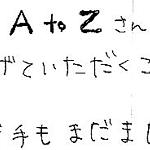 A to Z さん
げていただくこ
手もまだまし